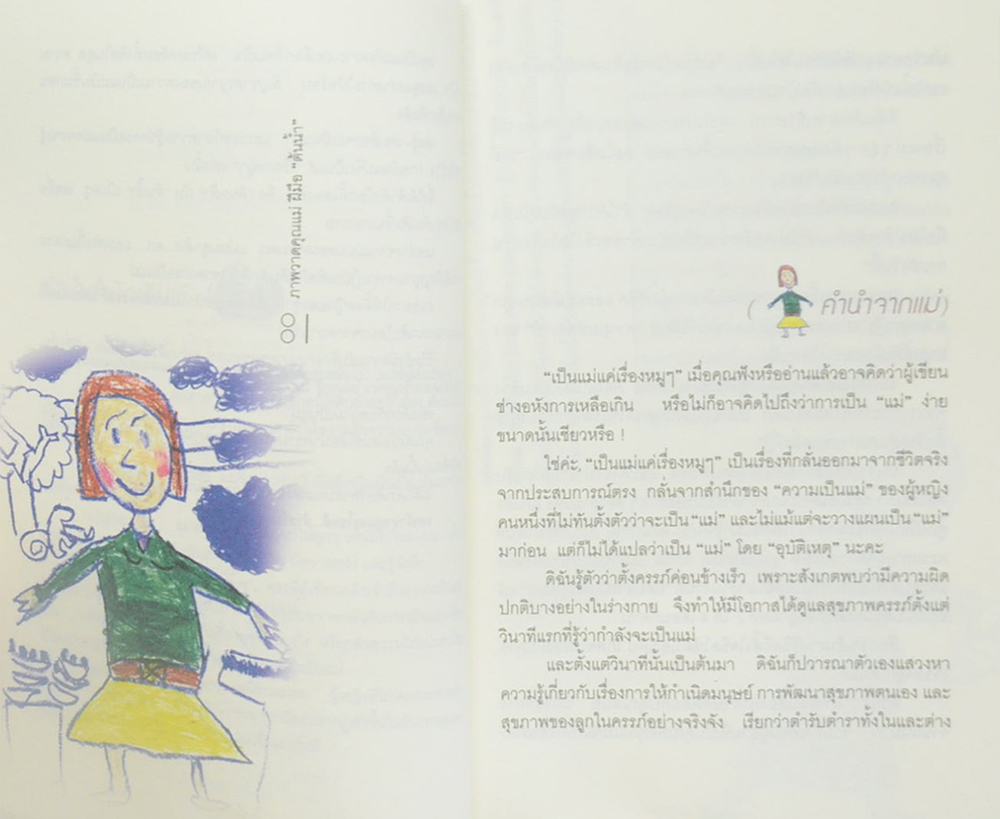 ภาพวาดคุณแม่ ฝีมือ “ต้นน้ำ”
(คำนำจากแม่)
“เป็นแม่แค่เรื่องหมูๆ” เมื่อคุณฟังหรืออ่านแล้วอาจคิดว่าผู้เขียน
ช่างอหังการเหลือเกิน หรือไม่ก็อาจคิดไปถึงว่าการเป็น “แม่” ง่าย
ขนาดนั้นเชียวหรือ !
ใช่ค่ะ, “เป็นแม่แค่เรื่องหมูๆ” เป็นเรื่องที่กลั่นออกมาจากชีวิตจริง
จากประสบการณ์ตรง กลั่นจากสำนึกของ “ความเป็นแม่” ของผู้หญิง
คนหนึ่งที่ไม่ทันตั้งตัวว่าจะเป็น “แม่” และไม่แม้แต่จะวางแผนเป็น “แม่”
มาก่อน แต่ก็ไม่ได้แปลว่าเป็น “แม่” โดย “อุบัติเหตุ” นะคะ
ดิฉันรู้ตัวว่าตั้งครรภ์ค่อนข้างเร็ว เพราะสังเกตพบว่ามีความผิด
ปกติบางอย่างในร่างกาย จึงทำให้มีโอกาสได้ดูแลสุขภาพครรภ์ตั้งแต่
วินาทีแรกที่รู้ว่ากำลังจะเป็นแม่
และตั้งแต่วินาทีนั้นเป็นต้นมา ดิฉันก็ปวารณาตัวเองแสวงหา
ความรู้เกี่ยวกับเรื่องการให้กำเนิดมนุษย์ การพัฒนาสุขภาพตนเอง และ
สุขภาพของลูกในครรภ์อย่างจริงจัง เรียกว่าตำรับตำราทั้งในและต่าง